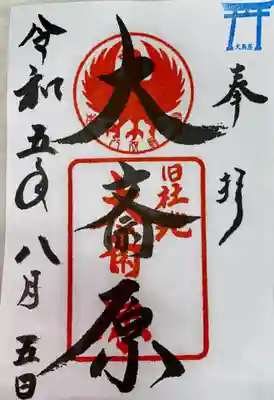 奉拝
大斎原
旧社地
令和五年八月五日